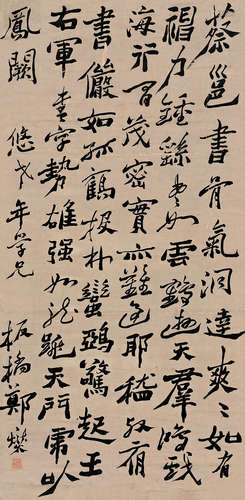 蔡邕書骨氣洞達爽〻如有
力鍾繇書如雲鵠遊天群鴻戲
海行間茂密實亦難過耶嵇叔夜
書儼如孤鶴投驚起王
右軍書字勢雄強如龍跳天門虎臥
鳳闕 年學兄 板橋鄭燮